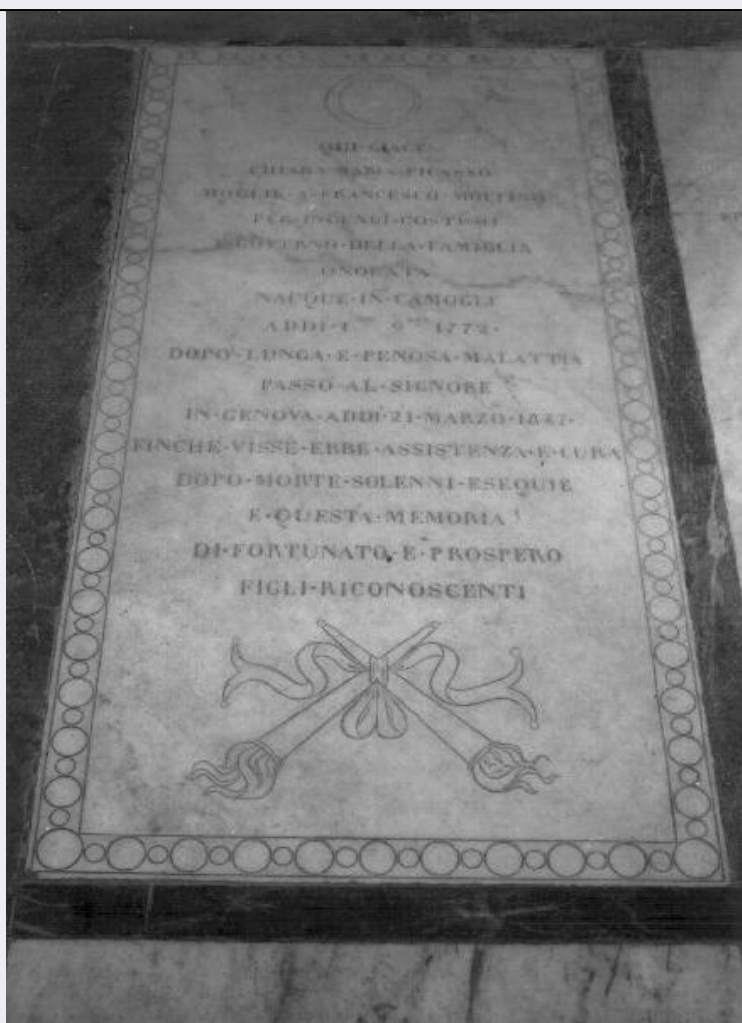 QUI·GIACE
CHIARA·MARIA·PICASSO
MOGLIE·A·FRANCESCO·MOLFINO
PER·INGENUI·COSTUMI
E·GOVERNO·DELLA·FAMIGLIA
ONORATA
NACQUE·IN·CAMOGLI
ADDI·1 9 1772·
DOPO·LUNGA·E·PENOSA·MALATTIA
PASSO·AL·SIGNORE
IN·GENOVA·ADDI·21·MARZO·1837·
FINCHE·VISSE·EBBE·ASSISTENZA·E·CURA
DOPO·MORTE·SOLENNI·ESEQUIE
E·QUESTA·MEMORIA
DI·FORTUNATO·E·PROSPERO
FIGLI·RICONOSCENTI